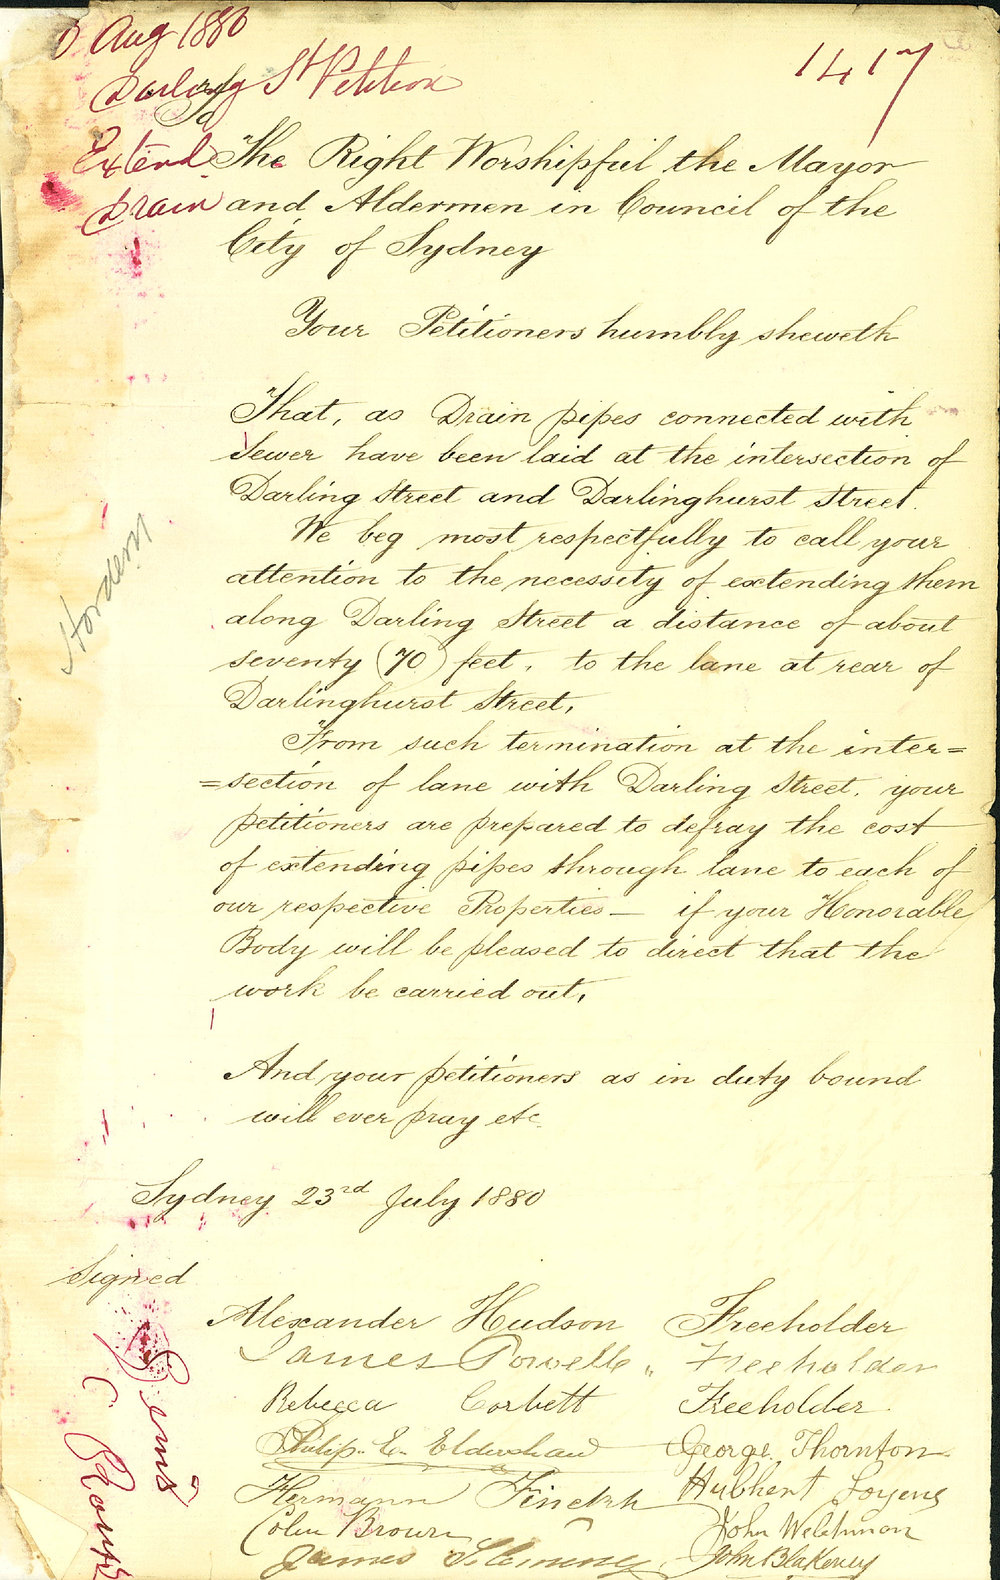 Aug 1880
Darling St Petition
1417
Extend
Drain
To
The Right Worshipful the Mayor
and Aldermen in Council of the
City of Sydney
Your Petitioners humbly sheweth
That, as Drain pipes connected with
Sewer have been laid at the intersection of
Darling Street and Darlinghurst Street.
We beg most respectfully to call your
attention to the necessity of extending them
along Darling Street a distance of about
seventy (70) feet, to the lane at rear of
Darlinghurst Street,
From such termination at the inter=
=section of lane with Darling Street, your
petitioners are prepared to defray the cost
of extending pipes through lane to each of
our respective Properties — if your Honorable
Body will be pleased to direct that the
work be carried out,
And your petitioners as in duty bound
will ever pray etc
Sydney 23rd July 1880
Signed
Alexander Hudson Freeholder
James Powell Freeholder
Rebecca Corbett Freeholder
Philip E. Eldershaw George Thornton
Hermann
Colin Brown John
James John Blakeney
Hordern